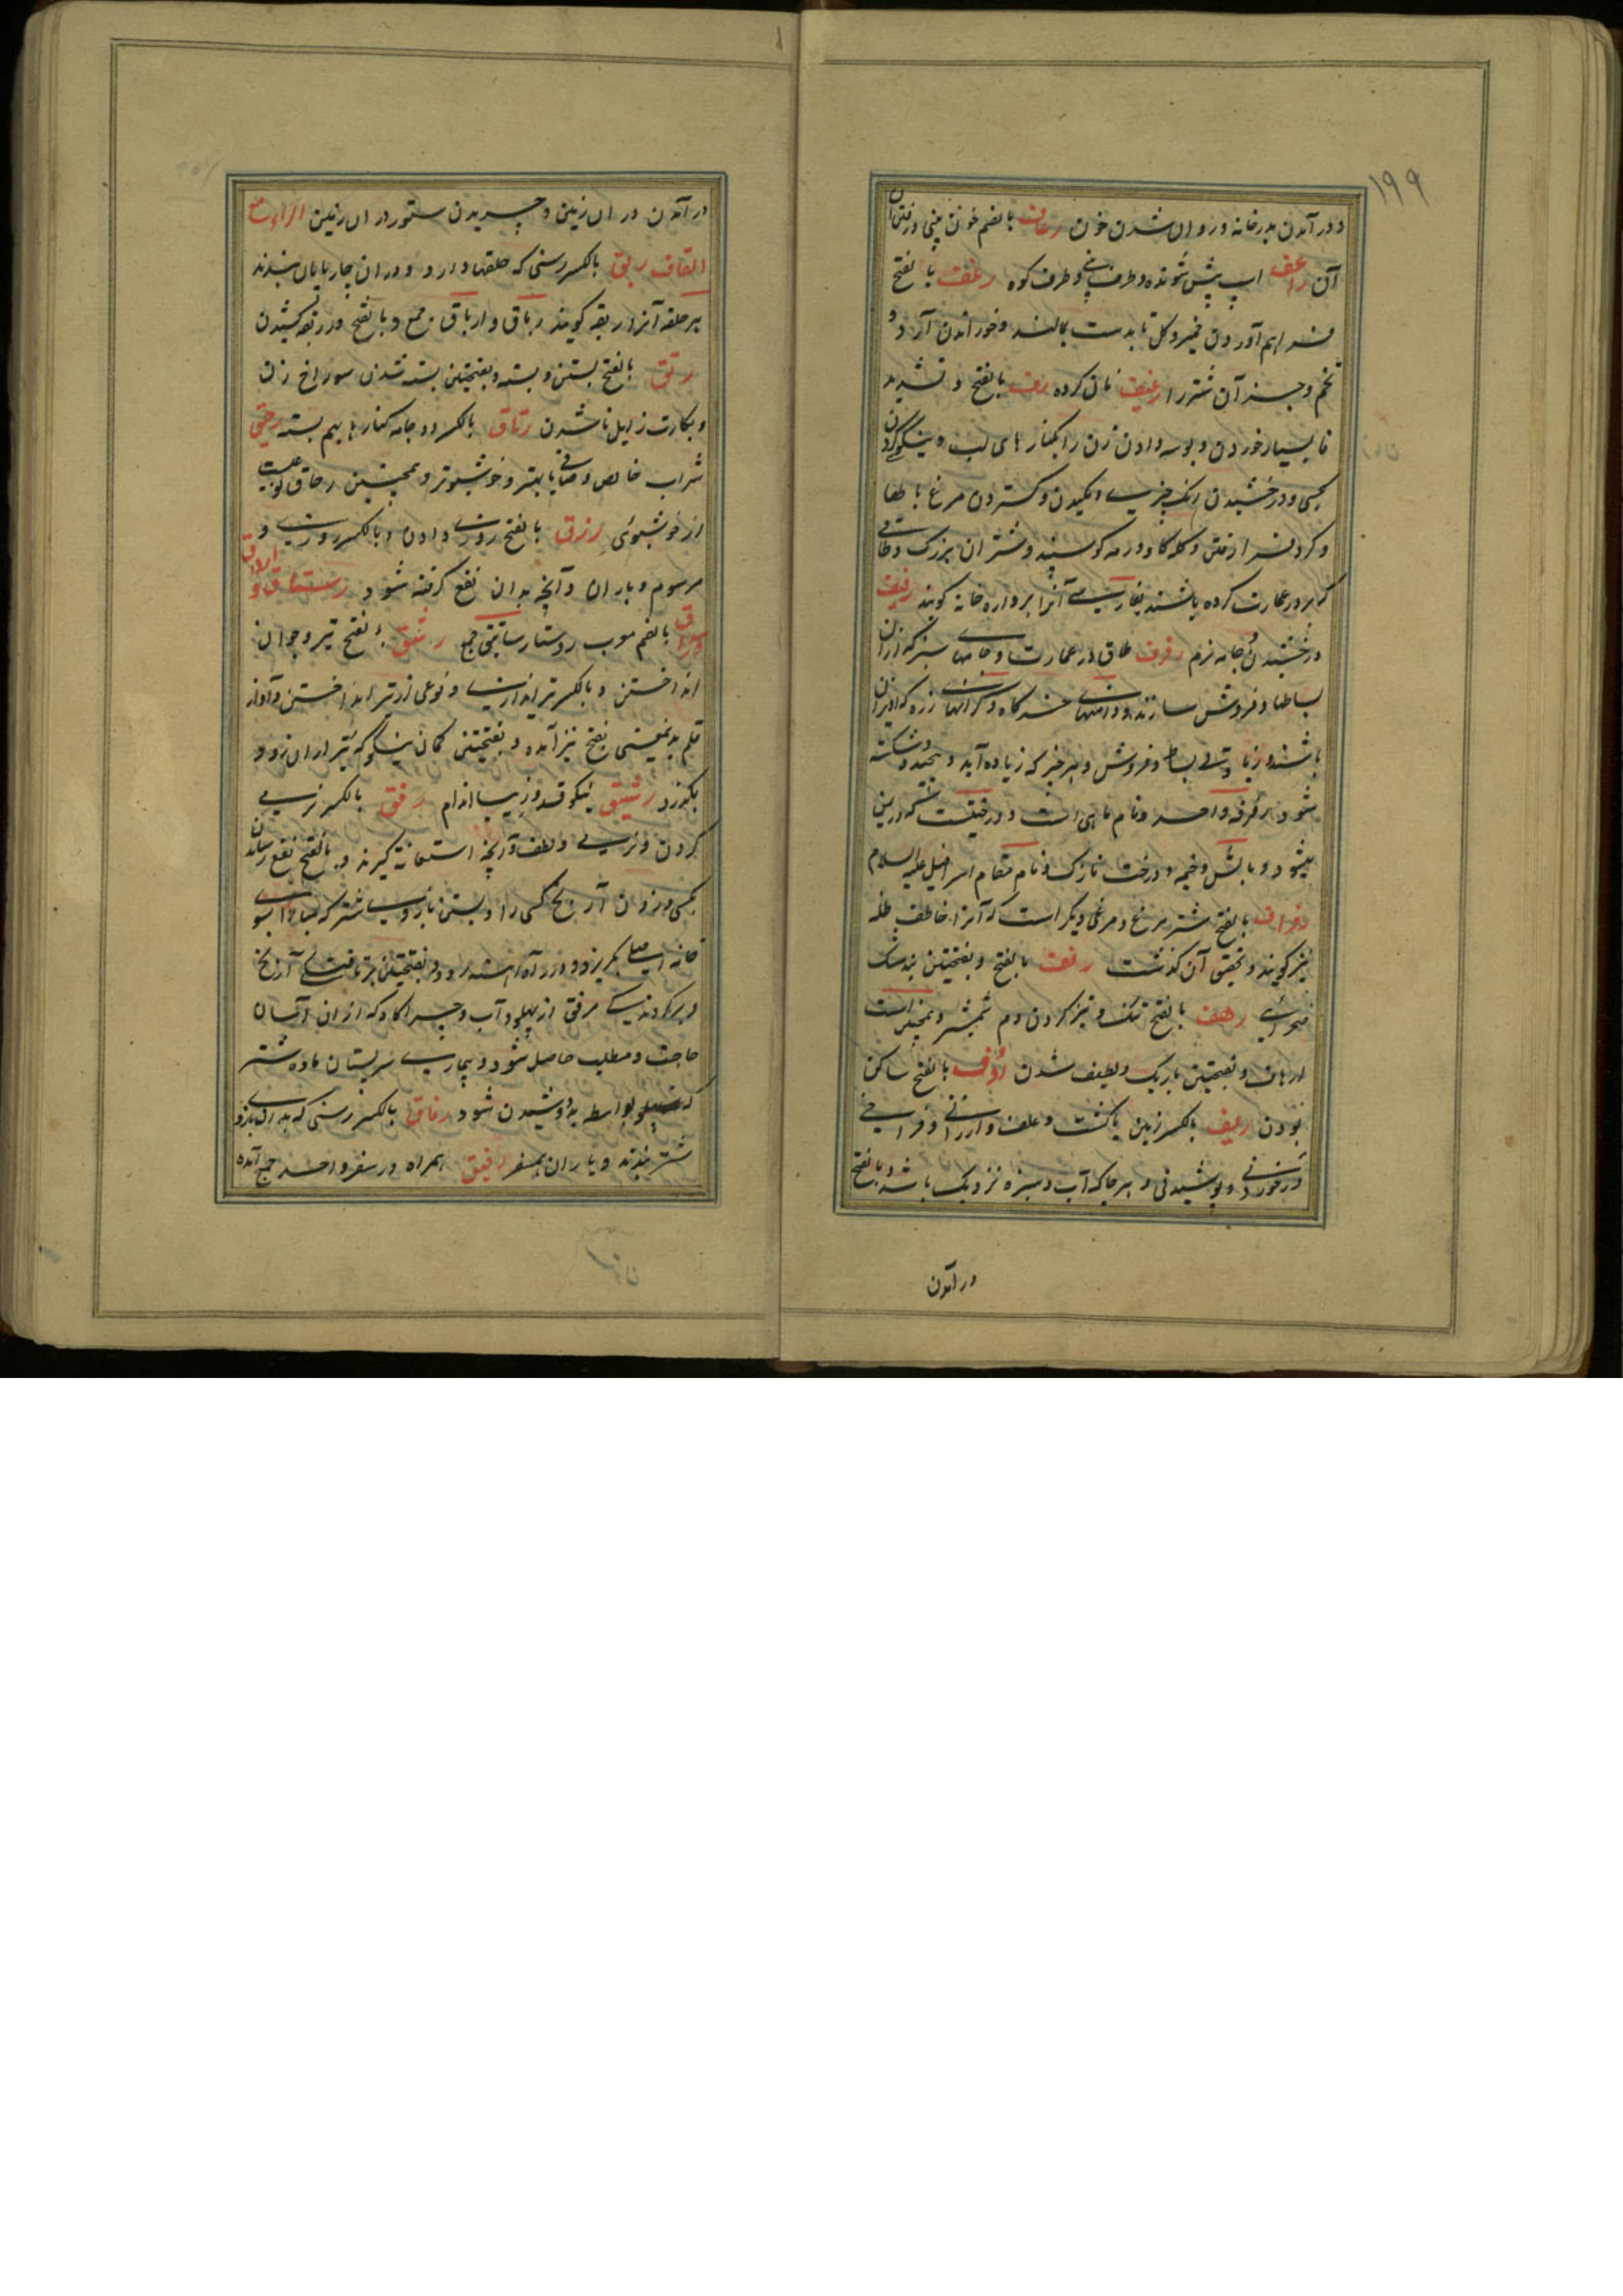 ۱۹۹
و در آمدن بدر خانه و روان شدن خون رعاف بالضم خون بینی و رفتن
آن راعف اسپ پیش شونده و طرف بینی و طرف کوه رغف بالفتح
فراهم آوردن خمیر و گل تا بدست بمالند و خوراندن آرد و
تخم و جز آن شتر را رغیف نان کرده رف بالفتح و تشدید
فا بسیار خوردن و بوسه دادن زن را بکنار های لب و نیکوی کردن
بکسی و درخشیدن رنک چیزی و مکیدن و گستردن مرغ بالها
و کرد فرا رفتن و کله کاو و رمه کوسپند و شتران بزرک و طاقی
که بر در عمارت کرده باشند بفارسی آنرا برواره خانه کویند رفیف
درخشیدن و جامه نرم رفرف طاق در عمارت و جامهای سبز که ازان
بساطها و فروش سازند و دامنهای خرکاه و کرانهای زره که آویزان
باشند و زیادتی بساط و فروش و هر چیز که زیاده آید و پیچیده و شکسته
شود رفرفه واحد و نام ماهی است و درختیست که در یمن
میشود و بالش و خیمه و درخت نازک و نام مقام اسرافیل علیه السلام
رفراف بالفتح شتر مرغ و مرغی دیکر است که آنرا خاطف ظله
نیز کویند و تحقیق آن گذشت رنف بالفتح و بفتحتین بید مشک
صحرائی رهف بالفتح تنک و تیز کردن دم شمشیر و همچنین است
ارهاف و بفتحتین باریک و لطیف شدن رؤف بالفتح ساکن
بودن ریف بالکسر زمین با کشت و علف و ارزانی و فراخی
در خوردنی و پوشیدنی و هر جا که آب و سبزه نزدیک باشد و بالفتح
در آمدن
در آمدن در ان زمین و چریدن ستور در ان زمین الراء مع
القاف ربق بالکسر رسنی که حلقها دارد و در ان چارپایان بندند
هر حلقه آنرا ربقه کویند رباق و ارباق جمع و بالفتح در ربقه کشیدن
رتق بالفتح بستن و بسته و بفتحتین بسته شدن سوراخ زن
و بکارت زایل ناشدن رتاق بالکسر دو جامه کنارها بهم بسته رحیق
شراب خالص و صافی یا بهتر و خوشبوتر و همچنین رحاق نوعیست
از خوشبوئی رزق بالفتح روزی دادن و بالکسر روزی و
مرسوم و باران و آنچه بدان نفع گرفته شود ارزاق رستاق و
رزداق بالضم معرب روستا رساتیق جمع رشق بالفتح تیر و جز آن
انداختن و بالکسر تیر اندازی و نوعی از تیر انداختن و آواز
قلم بدینمعنی بفتح نیز آمده و بفتحتین کمان نیکو که تیر ازان زود
بگذرد رشیق نیکو قد و زیبا اندام رفق بالکسر نرمی
کردن و نرمی و لطف و آنچه استعانة گیرند و بالفتح نفع رساندن
بکسی و زدن آرنج کسی را و بستن بازوی شتر که مبادا بسوی
خانه اصلی بگریزد و در راه آهسته رود و بفتحتین بر تافتگی آرنج
و برگردندگی مرفق از پهلو و آب و چراگاه که ازان آسان
حاجت و مطلب حاصل شود و بیماری سر پستان ماده شتر
که بواسطه بد دوشیدن شود رفاق بالکسر رسنی که بدان بازوی
شتر بندند و یاران همسفر رفیق همراه در سفر واحد و جمع آمده